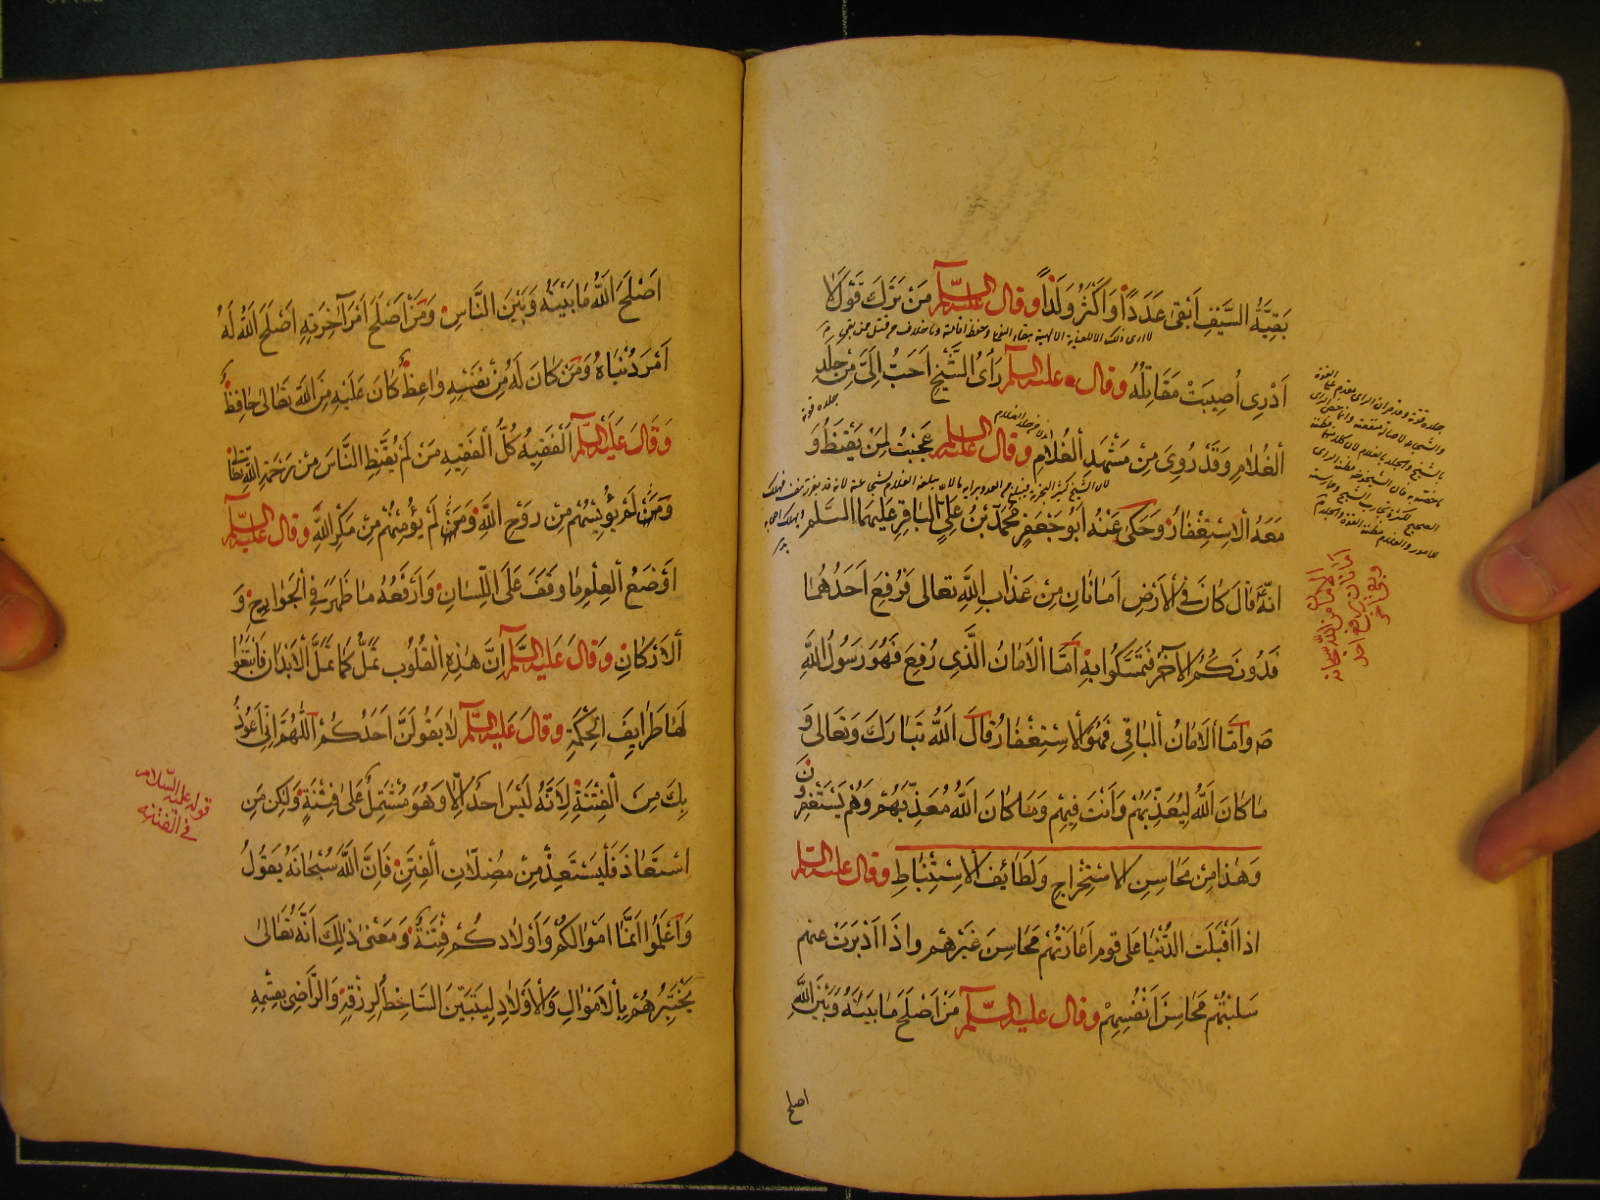 بَقِيَّةُ السَّيْفِ اَبْقَى عَدَدًا وَاَكْثَرُ وَلَدًا وقال عليه السلم مَنْ تَرَكَ قَوْلَ لَا
اَدْرِى اُصِيبَتْ مَقَاتِلُهُ وقال عليه السلم رَأىُ الشَّيْخِ اَحَبُّ اِلَىَّ مِنْ جَلَدِ
الْغُلامِ وَقَدْ رُوِىَ مِنْ مَشْهَدِ الْغُلَامِ وقال عليه السلم عَجِبْتُ لِمَنْ يَقْنَطُ وَ
مَعَهُ الْاِسْتِغْفَارُ وَحَكى عَنْهُ اَبُو جَعْفَرٍ مُحَمَّدُ بْنُ عَلِىٍّ الْبَاقِرِ عَلَيْهِمَا السَّلم
اَنَّهُ قَالَ كَانَ فِى الْاَرْضِ اَمَانَانِ مِنْ عَذَابِ اللَّهِ تعالى فَرُفِعَ اَحَدُهُمَا
فَدُونَكُمُ الْآخَرَ فَتَمَسَّكُوا بِهِ اَمَّا الْاَمَانُ الَّذِى رُفِعَ فَهُوَ رَسُولُ اللَّهِ
صَ وَاَمَّا الْاَمَانُ الْبَاقِى فَهُوَ الْاِسْتِغْفَارُ قَالَ اللَّهُ تَبَارَكَ وَتَعَالى وَ
مَا كَانَ اللَّهُ لِيُعَذِّبَهُمْ وَاَنْتَ فِيهِمْ وَمَا كَانَ اللَّهُ مُعَذِّبَهُمْ وَهُمْ يَسْتَغْفِرُونَ
وَهٰذَا مِنْ مَحَاسِنِ الاسْتِخْرَاجِ وَلَطَائِفِ الْاِسْتِنْبَاطِ وقال عليه السلم
اذا اَقْبَلَتِ الدُّنْيَا عَلى قوم اَعَارَتْهُمْ مَحَاسِنَ غَيْرِهُمْ واذَا اَدْبَرَتْ عنهم
سَلَبَتْهُمْ مَحَاسِنَ اَنْفُسِهِمْ وقال عليه السلم مَنْ اَصْلَحَ مَا بَيْنَهُ وَبَيْنَ اللَّهِ
اصلح
الامان
امانان من الله سبحانه
يرفع احد
وبقى آخر
اَصْلَحَ اللَّهُ مَا بَيْنَهُ وَبَيْنَ النَّاسِ وَمَنْ اَصْلَحَ اَمْرَ آخِرَتِهِ اَصْلَحَ اللَّهُ لَهُ
اَمْرَ دُنْيَاهُ وَمَنْ كَانَ لَهُ مِنْ نَفْسِهِ وَاعِظٌ كَانَ عَلَيْهِ مِنَ اللَّهِ تَعَالى حَافِظٌ
وَقَالَ عَلَيْهِ السَّلم اَلْفَقِيهُ كُلُّ الْفَقِيهِ مَنْ لَمْ يُقَنِّطِ النَّاسَ مِنْ رَحْمَةِ اللَّهِ تعالى
وَلَمْ يُؤْيِسْهُمْ مِنْ رَوْحِ اللَّهِ وَلَمْ يُؤْمِنْهُمْ مِنْ مَكْرِ اللَّهِ وقال عليه السلم
اَوْضَعُ الْعِلْمِ مَا وَقَفَ عَلَى اللِّسَانِ وَاَرْفَعُهُ مَا ظَهَرَ فِى الْجَوَارِحِ وَ
الْاَرْكَانِ وَقَالَ عَلَيْهِ السَّلم اِنَّ هٰذِهِ الْقُلُوبَ تَمَلُّ كَمَا تَمَلُّ الْاَبْدَانُ فَابْتَغُوا
لَهَا طَرَايِفَ الْحِكْمَةِ وَقالَ عَلَيْهِ السَّلم لَا يَقُولَنَّ اَحَدُكُمْ اَللّٰهُمَّ اِنِّى اَعُوذُ
بِكَ مِنَ الْفِتْنَةِ لِاَنَّهُ لَيْسَ اَحَدٌ اِلَّا وَهُوَ مُشْتَمِلٌ عَلَى فِتْنَةٍ وَلكِنْ مَنِ
اسْتَعَاذَ فَلْيَسْتَعِذْ مِنْ مُضِلَّاتِ الْفِتَنِ فَاِنَّ اللَّهَ سُبْحَانَهُ يَقُولُ
وَاعْلَمُوا اَنَّمَا اَمْوَالُكُمْ وَاَوْلَادُكُمْ فِتْنَةٌ وَمَعْنى ذٰلِكَ اَنَّهُ تَعَالىٰ
يَخْتَبِرُهُمْ بِالْاَمْوَالِ وَالْاَوْلَادِ لِيَتَبَيَّنَ السَّاخِطُ لِرِزْقِهِ وَالرَّاضِى بِقِسْمِهِ
قوله عليه السّلام
فى الفتنه